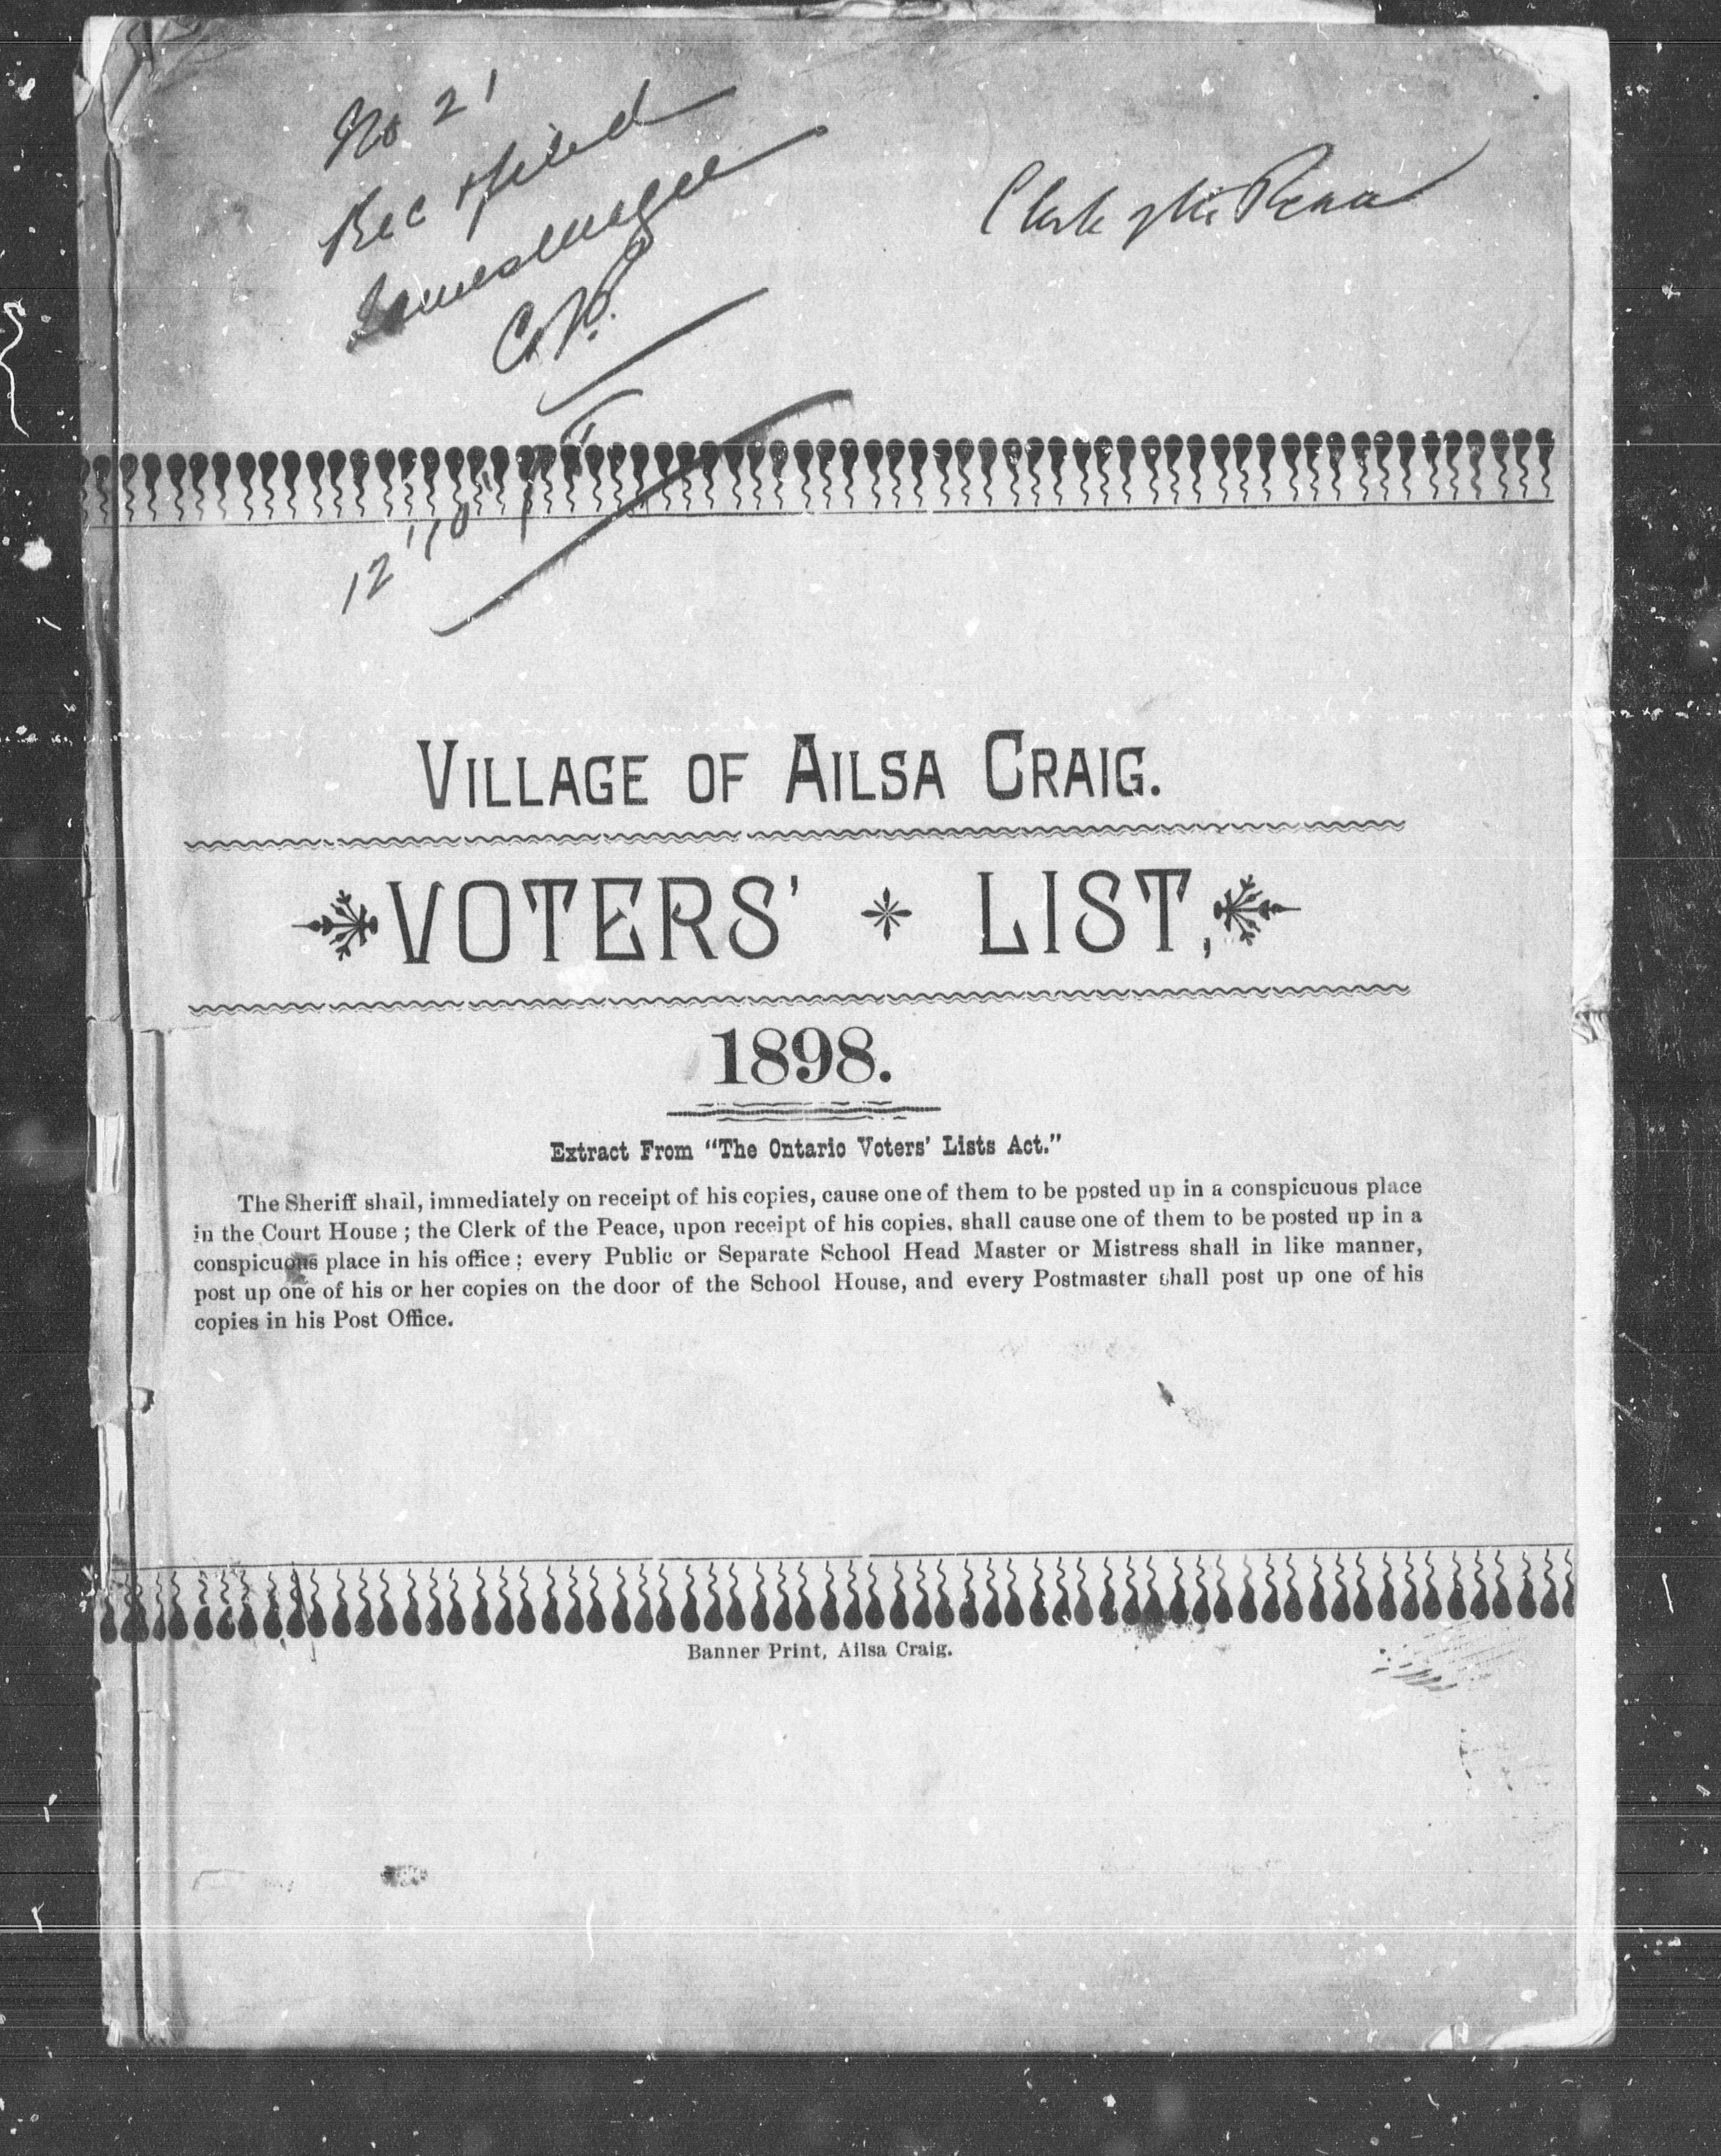 No 21
Rec & filed
James Magee
C.P.
Clerk of the Peace
12
VILLAGE OF AILSA CRAIG.
VOTERS' LIST,
1898.
Extract From "The Ontario Voters' Lists Act."
The Sheriff shall, immediately on receipt of his copies, cause one of them to be posted up in a conspicuous place
in the Court House ; the Clerk of the Peace, upon receipt of his copies, shall cause one of them to be posted up in a
conspicuous place in his office ; every Public or Separate School Head Master or Mistress shall in like manner,
post up one of his or her copies on the door of the School House, and every Postmaster shall post up one of his
copies in his Post Office.
Banner Print, Ailsa Craig.